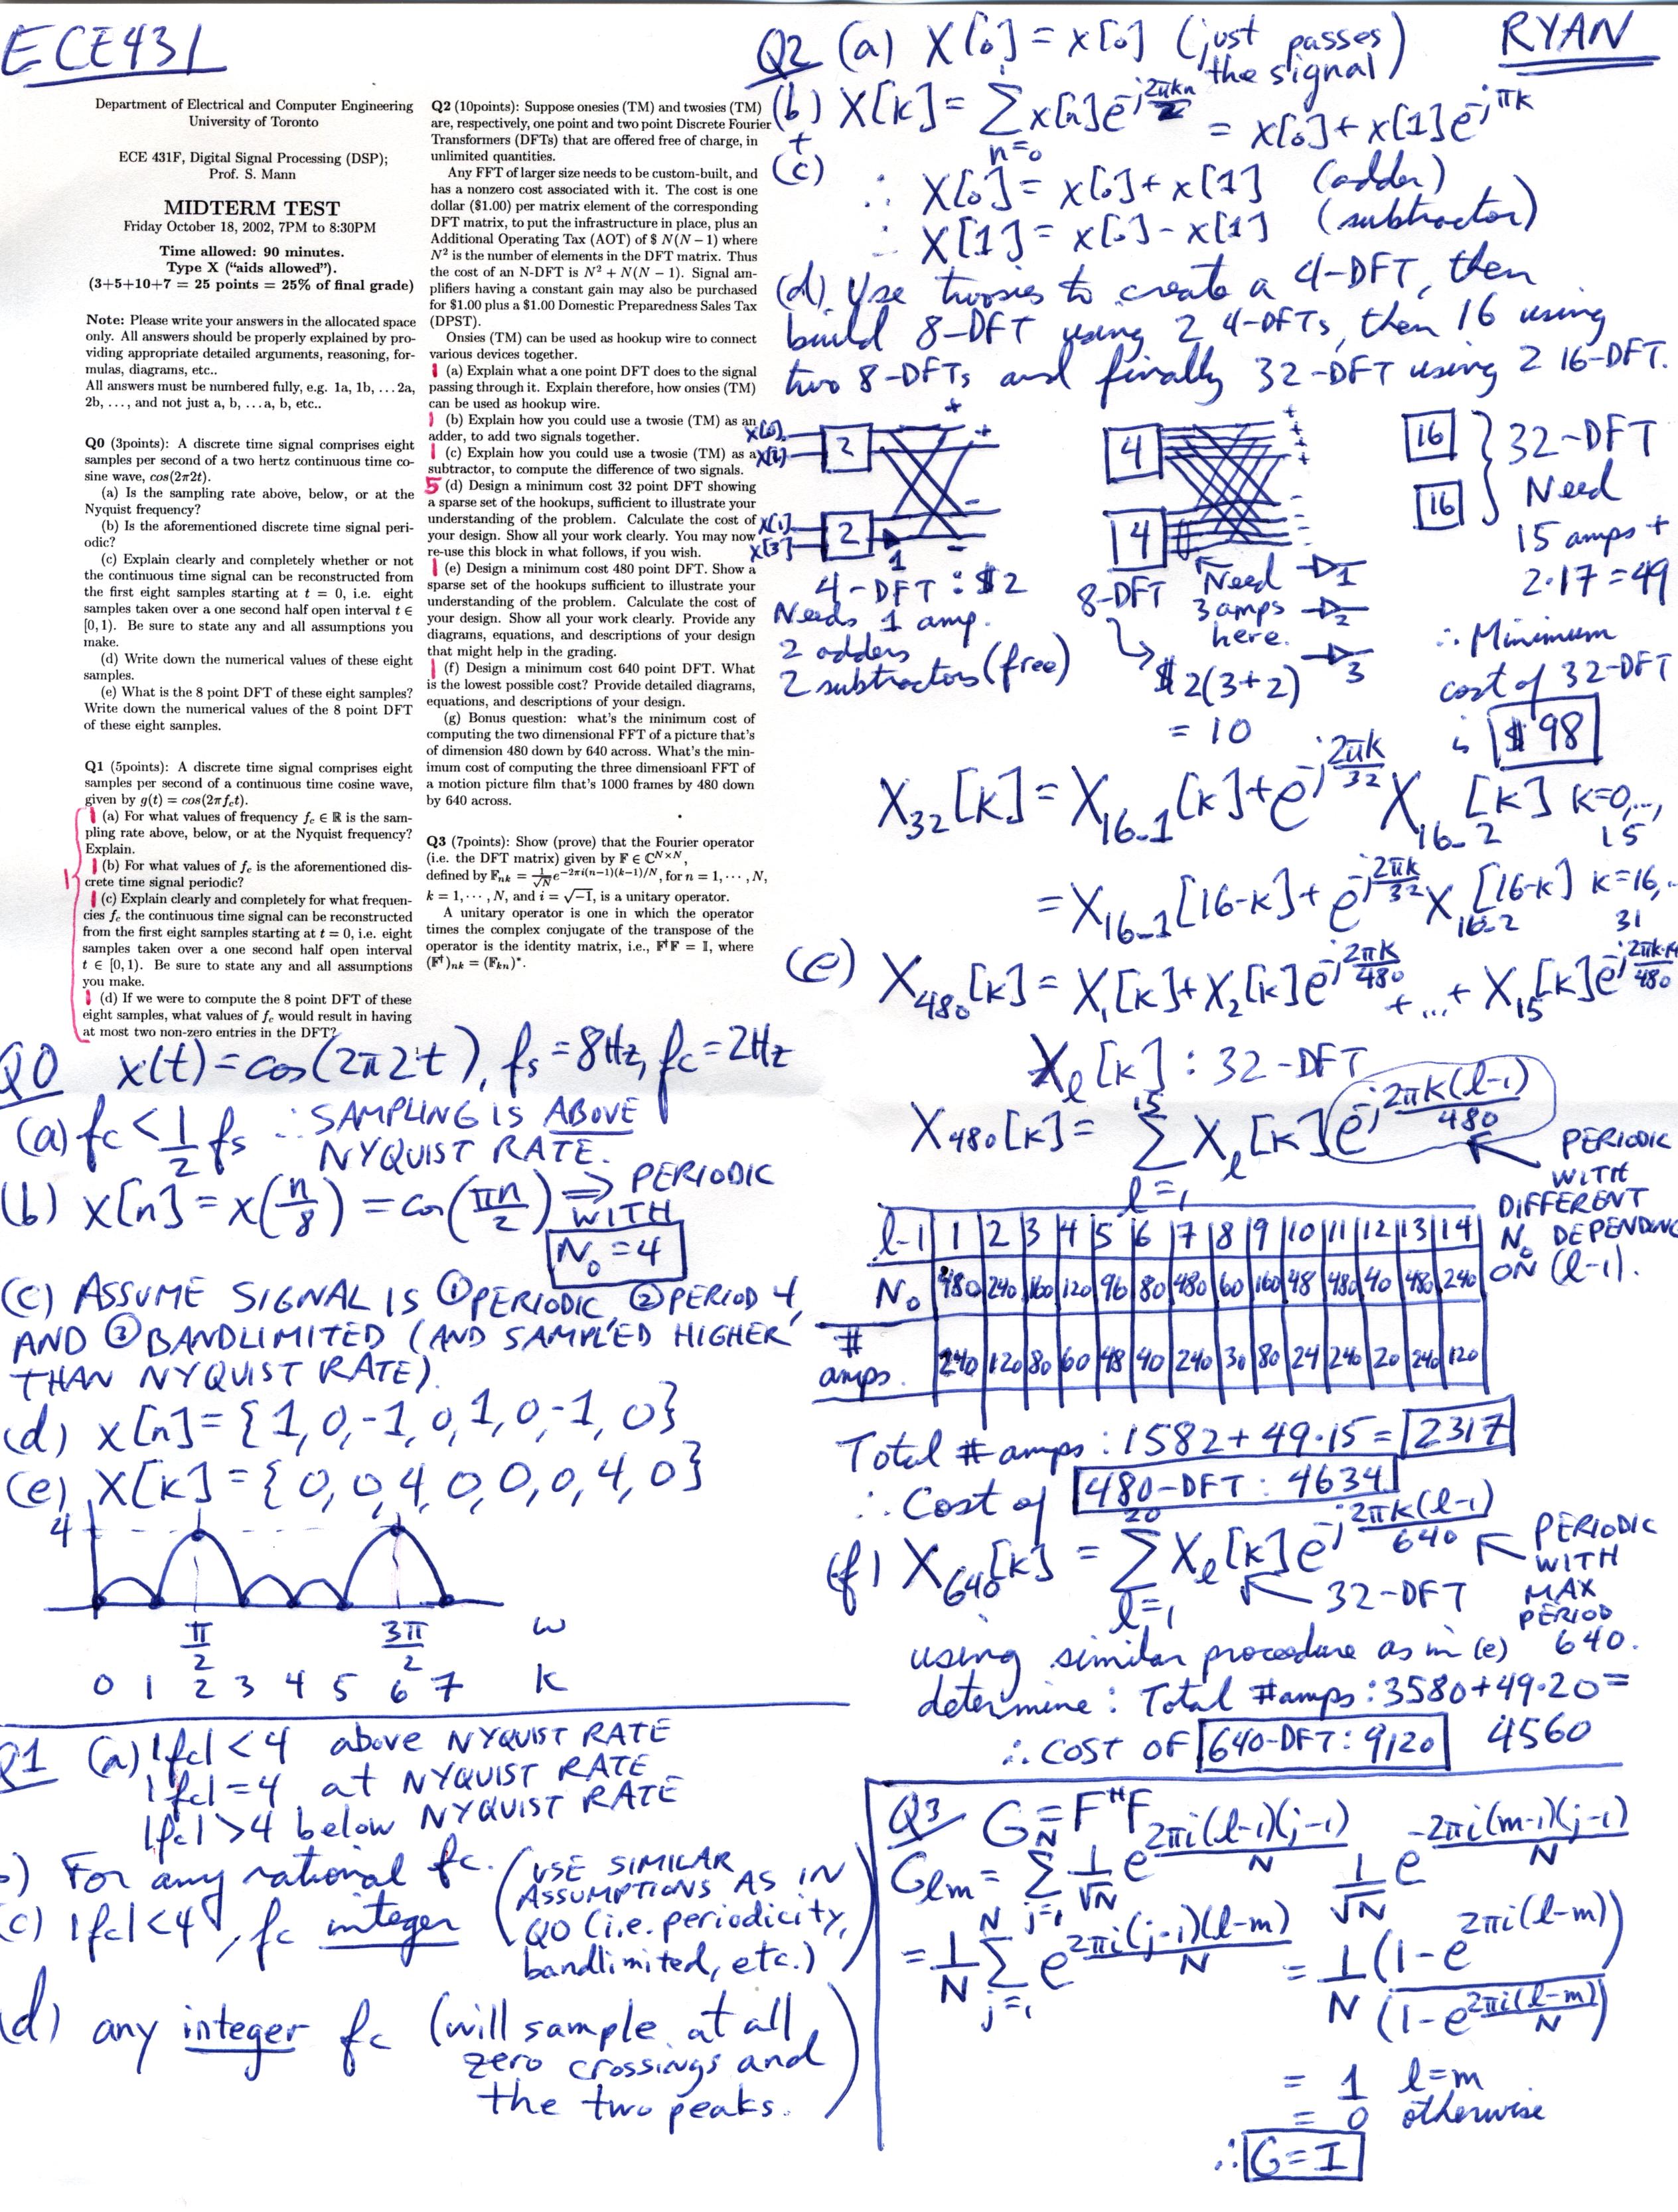 ECE431
Department of Electrical and Computer Engineering
University of Toronto
ECE 431F, Digital Signal Processing (DSP);
Prof. S. Mann
MIDTERM TEST
Friday October 18, 2002, 7PM to 8:30PM
Time allowed: 90 minutes.
Type X (“aids allowed”).
(3+5+10+7 = 25 points = 25% of final grade)
Note: Please write your answers in the allocated space
only. All answers should be properly explained by pro-
viding appropriate detailed arguments, reasoning, for-
mulas, diagrams, etc..
All answers must be numbered fully, e.g. 1a, 1b, ...2a,
2b, ..., and not just a, b, ...a, b, etc..
Q0 (3points): A discrete time signal comprises eight
samples per second of a two hertz continuous time co-
sine wave, cos(2π2t).
(a) Is the sampling rate above, below, or at the
Nyquist frequency?
(b) Is the aforementioned discrete time signal peri-
odic?
(c) Explain clearly and completely whether or not
the continuous time signal can be reconstructed from
the first eight samples starting at t = 0, i.e. eight
samples taken over a one second half open interval t ∈
[0,1). Be sure to state any and all assumptions you
make.
(d) Write down the numerical values of these eight
samples.
(e) What is the 8 point DFT of these eight samples?
Write down the numerical values of the 8 point DFT
of these eight samples.
Q1 (5points): A discrete time signal comprises eight
samples per second of a continuous time cosine wave,
given by g(t) = cos(2πf_ct).
1 (a) For what values of frequency f_c ∈ ℝ is the sam-
pling rate above, below, or at the Nyquist frequency?
Explain.
1 (b) For what values of f_c is the aforementioned dis-
crete time signal periodic?
1 (c) Explain clearly and completely for what frequen-
cies f_c the continuous time signal can be reconstructed
from the first eight samples starting at t = 0, i.e. eight
samples taken over a one second half open interval
t ∈ [0,1). Be sure to state any and all assumptions
you make.
1 (d) If we were to compute the 8 point DFT of these
eight samples, what values of f_c would result in having
at most two non-zero entries in the DFT?
1
Q2 (10points): Suppose onesies (TM) and twosies (TM)
are, respectively, one point and two point Discrete Fourier
Transformers (DFTs) that are offered free of charge, in
unlimited quantities.
Any FFT of larger size needs to be custom-built, and
has a nonzero cost associated with it. The cost is one
dollar ($1.00) per matrix element of the corresponding
DFT matrix, to put the infrastructure in place, plus an
Additional Operating Tax (AOT) of $ N(N − 1) where
N² is the number of elements in the DFT matrix. Thus
the cost of an N-DFT is N² + N(N − 1). Signal am-
plifiers having a constant gain may also be purchased
for $1.00 plus a $1.00 Domestic Preparedness Sales Tax
(DPST).
Onsies (TM) can be used as hookup wire to connect
various devices together.
1 (a) Explain what a one point DFT does to the signal
passing through it. Explain therefore, how onsies (TM)
can be used as hookup wire.
1 (b) Explain how you could use a twosie (TM) as an
adder, to add two signals together.
1 (c) Explain how you could use a twosie (TM) as a
subtractor, to compute the difference of two signals.
5 (d) Design a minimum cost 32 point DFT showing
a sparse set of the hookups, sufficient to illustrate your
understanding of the problem. Calculate the cost of
your design. Show all your work clearly. You may now
re-use this block in what follows, if you wish.
1 (e) Design a minimum cost 480 point DFT. Show a
sparse set of the hookups sufficient to illustrate your
understanding of the problem. Calculate the cost of
your design. Show all your work clearly. Provide any
diagrams, equations, and descriptions of your design
that might help in the grading.
1 (f) Design a minimum cost 640 point DFT. What
is the lowest possible cost? Provide detailed diagrams,
equations, and descriptions of your design.
(g) Bonus question: what's the minimum cost of
computing the two dimensional FFT of a picture that's
of dimension 480 down by 640 across. What's the min-
imum cost of computing the three dimensioanl FFT of
a motion picture film that's 1000 frames by 480 down
by 640 across.
Q3 (7points): Show (prove) that the Fourier operator
(i.e. the DFT matrix) given by 𝔽 ∈ ℂ^{N×N},
defined by 𝔽_{nk} = 1/√N e^{−2πi(n−1)(k−1)/N}, for n = 1, ⋯, N,
k = 1, ⋯, N, and i = √−1, is a unitary operator.
A unitary operator is one in which the operator
times the complex conjugate of the transpose of the
operator is the identity matrix, i.e., 𝔽†𝔽 = 𝕀, where
(𝔽†)_{nk} = (𝔽_{kn})*.
Q0 x(t) = cos(2π2t), fs = 8Hz, fc = 2Hz
(a) fc < 1/2 fs ∴ SAMPLING IS ABOVE
NYQUIST RATE.
(b) x[n] = x(n/8) = cos(πn/2) ⇒ PERIODIC
WITH
N₀ = 4
(c) ASSUME SIGNAL IS ① PERIODIC, ② PERIOD 4,
AND ③ BANDLIMITED (AND SAMPLED HIGHER
THAN NYQUIST RATE).
(d) x[n] = {1, 0, -1, 0, 1, 0, -1, 0}
(e) X[k] = {0, 0, 4, 0, 0, 0, 4, 0}
4
π/2 3π/2 ω
0 1 2 3 4 5 6 7 k
Q1 (a) |fc| < 4 above NYQUIST RATE
|fc| = 4 at NYQUIST RATE
|fc| > 4 below NYQUIST RATE
b) For any rational fc.
(c) |fc| < 4, fc integer
(USE SIMILAR
ASSUMPTIONS AS IN
Q0 (i.e. periodicity,
bandlimited, etc.)
(d) any integer fc (will sample at all
zero crossings and
the two peaks.)
RYAN
Q2 (a) X[0] = x[0] (just passes
the signal)
(b) X[k] = Σ_{n=0}^{1} x[n]e^{-j2πkn/2} = x[0] + x[1]e^{-jπk}
+
(c)
∴ X[0] = x[0] + x[1] (adder)
∴ X[1] = x[0] - x[1] (subtractor)
(d) Use twosies to create a 4-DFT, then
build 8-DFT using 2 4-DFTs, then 16 using
two 8-DFTs and finally 32-DFT using 2 16-DFT.
x[0] 2 + +
x[2]
x[1] 2 - -
x[3] 1
4-DFT : $2
Needs 1 amp.
2 adders
2 subtractors (free)
4 + + + +
4 - - - -
8-DFT
Need
3 amps
here.
1
2
3
$2(3+2)
= 10
16
16
32-DFT
Need
15 amps +
2·17 = 49
∴ Minimum
cost of 32-DFT
is $98
X₃₂[k] = X₁₆₋₁[k] + e^{-j2πk/32} X₁₆₋₂[k] k=0,..,15
= X₁₆₋₁[16-k] + e^{-j2πk/32} X₁₆₋₂[16-k] k=16,..31
(e) X₄₈₀[k] = X₁[k] + X₂[k]e^{-j2πk/480} + ... + X₁₅[k]e^{-j2πk·14/480}
X_l[k] : 32-DFT
X₄₈₀[k] = Σ_{l=1}^{15} X_l[k] e^{-j2πk(l-1)/480}
PERIODIC
WITH
DIFFERENT
N₀ DEPENDING
ON (l-1).
l-1 1 2 3 4 5 6 7 8 9 10 11 12 13 14
N₀ 480 240 160 120 96 80 480 60 160 48 480 40 480 240
# amps. 240 120 80 60 48 40 240 30 80 24 240 20 240 120
Total # amps : 1582 + 49·15 = 2317
∴ Cost of 480-DFT : 4634
(f) X₆₄₀[k] = Σ_{l=1}^{20} X_l[k] e^{-j2πk(l-1)/640}
32-DFT
PERIODIC
WITH
MAX
PERIOD
640.
using similar procedure as in (e)
determine : Total #amps : 3580 + 49·20 =
4560
∴ COST OF 640-DFT : 9120
Q3 G = F^H F
G_{lm} = Σ_{j=1}^{N} 1/√N e^{2πi(l-1)(j-1)/N} 1/√N e^{-2πi(m-1)(j-1)/N}
= 1/N Σ_{j=1}^{N} e^{2πi(j-1)(l-m)/N} = 1/N (1-e^{2πi(l-m)})/(1-e^{2πi(l-m)/N})
= 1 l=m
= 0 otherwise
∴ G = I